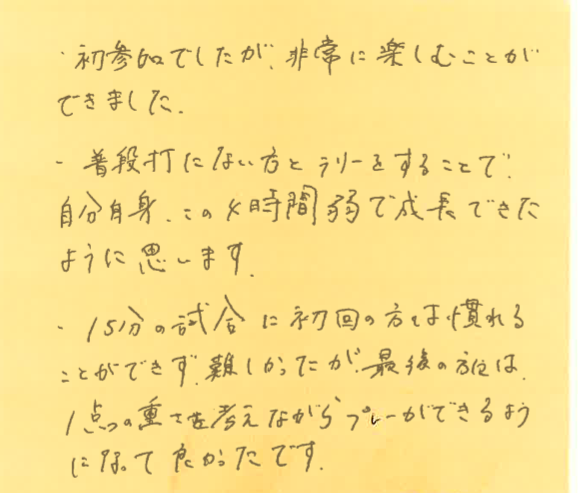 ・初参加でしたが、非常に楽しむことが
できました。
・普段打たない方とラリーをすることで、
自分自身、この4時間弱で成長できた
ように思います。
・15分の試合に初回の方は慣れる
ことができず、難しかったが、最後の方は、
1点の重さを考えながらプレーができるよう
になって良かったです。